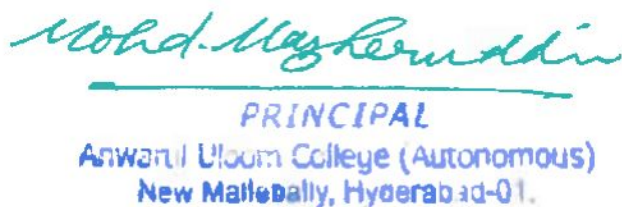 Mohd. Mazheruddin
PRINCIPAL
Anwarul Uloom College (Autonomous)
New Mallepally, Hyderabad-01.